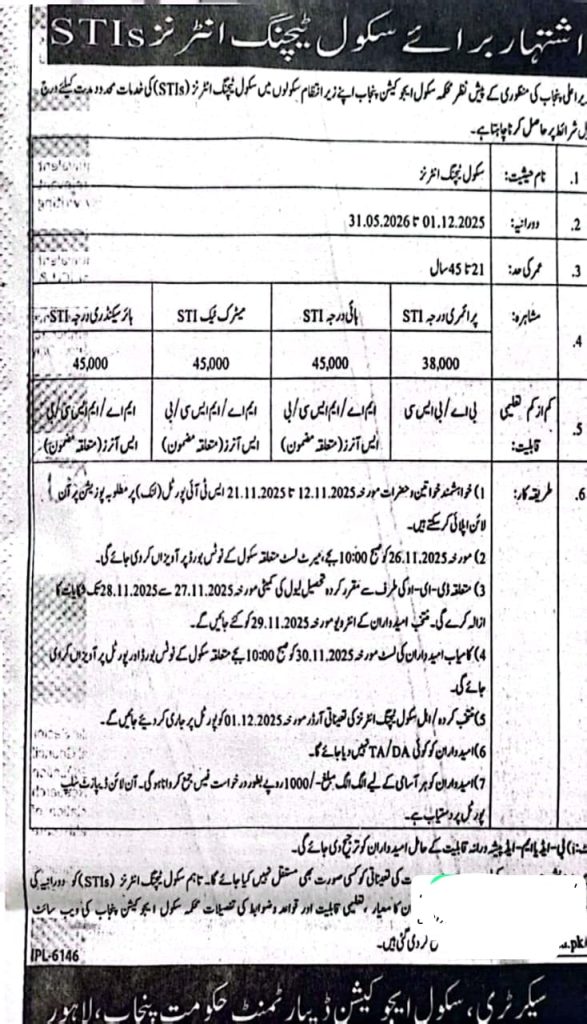 اشتہار برائے سکول ٹیچنگ انٹرنز STIs
اعلیٰ پنجاب کی منظوری کے پیش نظر محکمہ سکول ایجوکیشن پنجاب اپنے زیر انتظام سکولوں میں سکول ٹیچنگ انٹرنز (STIs) کی خدمات محدود مدت کیلئے درج
شرائط پر حاصل کرنا چاہتا ہے۔
1. نام حیثیت: سکول ٹیچنگ انٹرنز
2. دورانیہ: 01.12.2025 تا 31.05.2026
3. عمر کی حد: 21 تا 45 سال
4. مشاہرہ: پرائمری درجہ STI ہائی درجہ STI میٹرک ٹیک STI ہائر سیکنڈری درجہ STI
38,000 45,000 45,000 45,000
5. کم از کم تعلیمی بی اے/بی ایس سی ایم اے/ایم ایس سی/بی ایم اے/ایم ایس سی/بی ایم اے/ایم ایس سی/بی
قابلیت: ایس آنرز (متعلقہ مضمون) ایس آنرز (متعلقہ مضمون) ایس آنرز (متعلقہ مضمون)
6. طریقہ کار: 1) خواہشمند خواتین و حضرات مورخہ 12.11.2025 تا 21.11.2025 ایس ٹی آئی پورٹل (لنک) پر مطلوبہ پوزیشن پر آن
لائن اپلائی کر سکتے ہیں۔
2) مورخہ 26.11.2025 کو صبح 10:00 بجے، میرٹ لسٹ متعلقہ سکول کے نوٹس بورڈ پر آویزاں کر دی جائے گی۔
3) متعلقہ ڈی-ای-او کی طرف سے مقرر کردہ تحصیل لیول کی کمیٹی مورخہ 27.11.2025 سے 28.11.2025 تک شکایات کا
ازالہ کرے گی۔ منتخب امیدواران کے انٹرویو مورخہ 29.11.2025 کو کئے جائیں گے۔
4) کامیاب امیدواران کی لسٹ مورخہ 30.11.2025 کو صبح 10:00 بجے متعلقہ سکول کے نوٹس بورڈ اور پورٹل پر آویزاں کر دی
جائے گی۔
5) منتخب کردہ/اہل سکول ٹیچنگ انٹرنز کی تعیناتی آرڈر مورخہ 01.12.2025 کو پورٹل پر جاری کر دیئے جائیں گے۔
6) امیدواران کو کوئی TA/DA نہیں دیا جائے گا۔
7) امیدواران کو ہر آسامی کے لیے الگ الگ مبلغ -/1000 روپے بطور درخواست فیس جمع کروانا ہوگی۔ آن لائن ڈیپازٹ سلپ
پورٹل پر دستیاب ہے۔
i) بی-ایڈ یا ایم-ایڈ پیشہ ورانہ قابلیت کے حامل امیدواران کو ترجیح دی جائے گی۔
کی تعیناتی کو کسی صورت بھی مستقل نہیں کیا جائے گا۔ تاہم سکول ٹیچنگ انٹرنز (STIs) کو دورانیہ کی
کا معیار، تعلیمی قابلیت اور قواعد و ضوابط کی تفصیلات محکمہ سکول ایجوکیشن پنجاب کی ویب سائٹ
.pk/ کر دی گئی ہیں۔
IPL-6146
سیکرٹری، سکول ایجوکیشن ڈیپارٹمنٹ حکومت پنجاب، لاہور